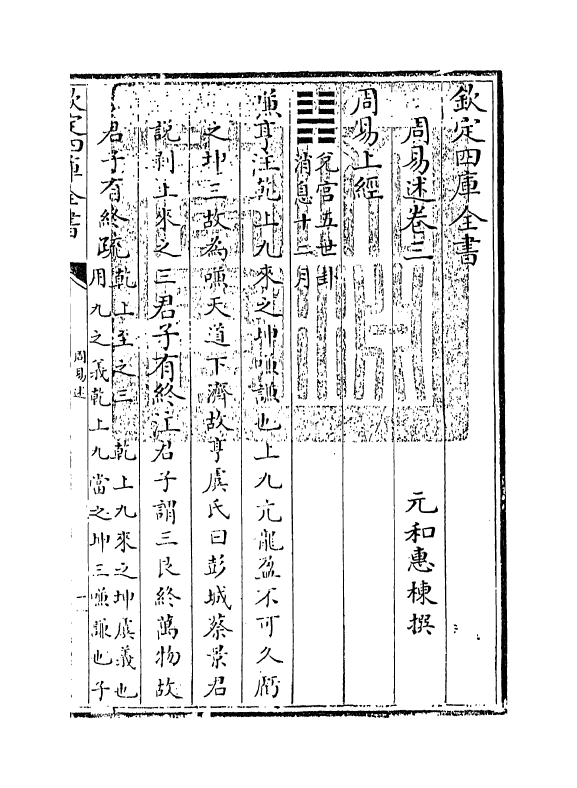 欽定四庫全書
周易述卷三
元和惠棟撰
周易上經
兌宮五世卦
消息十二月
嗛亨注乾上九來之坤嗛謙也上九亢龍盈不可久虧
之坤三故為嗛天道下濟故亨虞氏曰彭城蔡景君
説剥上來之三君子有終注君子謂三艮終萬物故
君子有終疏
乾上至之三 乾上九來之坤虞義也
用九之義乾上九當之坤三嗛謙也子
欽定四庫全書
周易述
一